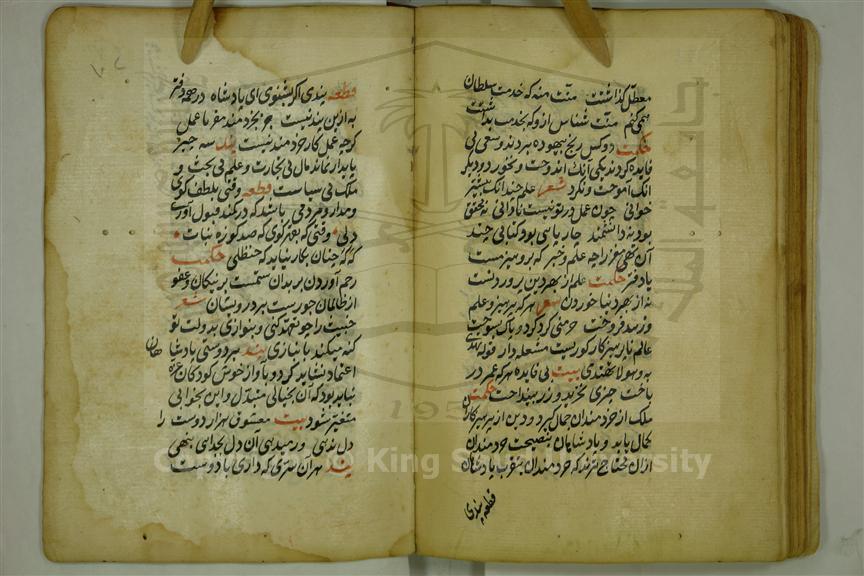 معطل نگذاشت منت منه که خدمت سلطان
همی کنم منت شناس ازو که بخدمت بداشت
حکمت دو کس رنج بیهوده بردند و سعی بی
فایده کردند یکی انک اندوخت و نخورد و دیگر
انک آموخت و نکرد شعر علم چندانک بیشتر
خوانی چون عمل در تو نیست نادانی نه محقق
بود نه دانشمند چارپایی برو کتابی چند
آن تهی مغز را چه علم و خبر که برو هیزمست
یا دفتر حکمت علم از بهر دین پروردنست
نه از بهر دنیا خوردن شعر هر که پرهیز و علم
و زهد فروخت خرمنی گرد کرد و پاک بسوخت
عالم ناپرهیزکار کوریست مشعله دار
به وهو لا یهتدی بیت بی فایده هر که عمر در
باخت چیزی نخرید و زر بینداخت حکمت
ملک از خردمندان جمال گیرد و دین از پرهیزکاران
کمال یابد و پادشاهان بنصیحت خردمندان
ازان محتاج ترند که خردمندان بتقرب پادشاهان
قطعه پندی
قطعه پندی اگر بشنوی ای پادشاه در همه دفتر
به از این پند نیست جز بخردمند مفرما عمل
گرچه عمل کار خردمند نیست پند سه چیز
پایدار نماند مال بی تجارت و علم بی بحث و
ملک بی سیاست قطعه وقتی بلطف گوی
و مدارا و مردمی باشد که در کمند قبول آوری
دلی وقتی بقهر گوی که صد کوزه نبات
که که چنان بکار نیاید که حنظلی حکمت
رحم آوردن بر بدان ستمست بر نیکان و عفو
از ظالمان جورست بر درویشان شعر
خبیث را چو تعهد کنی و بنوازی بدولت تو
گنه میکند بانبازی پند بر دوستی پادشاهان
اعتماد نشاید کرد و بآواز خوش کودکان غره
نباید بود که آن بخیالی متبدل و این بخوابی
متغیر شود بیت معشوق هزار دوست را
دل ندهی ور میدهی آن دل بجدایی بنهی
پند هر آن سری که داری با دوست
Copyright © King Saud University
جامعة الملك
195